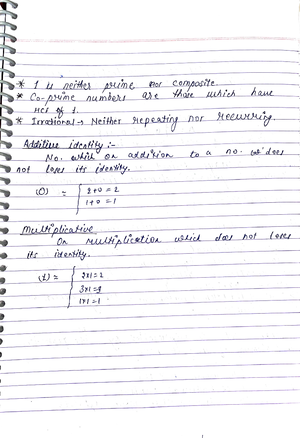 * 1 is neither prime nor composite
* Co-prime numbers are those which have
HCF of 1.
* Irrational → Neither repeating nor reccurring.
Additive identity :-
No. which on addition to a no. does
not loses its identity.
(0) = { 2+0 = 2
1+0 = 1
Multiplicative
On multiplication which does not loses
its identity.
(1) = { 2x1=2
3x1=3
1x1=1